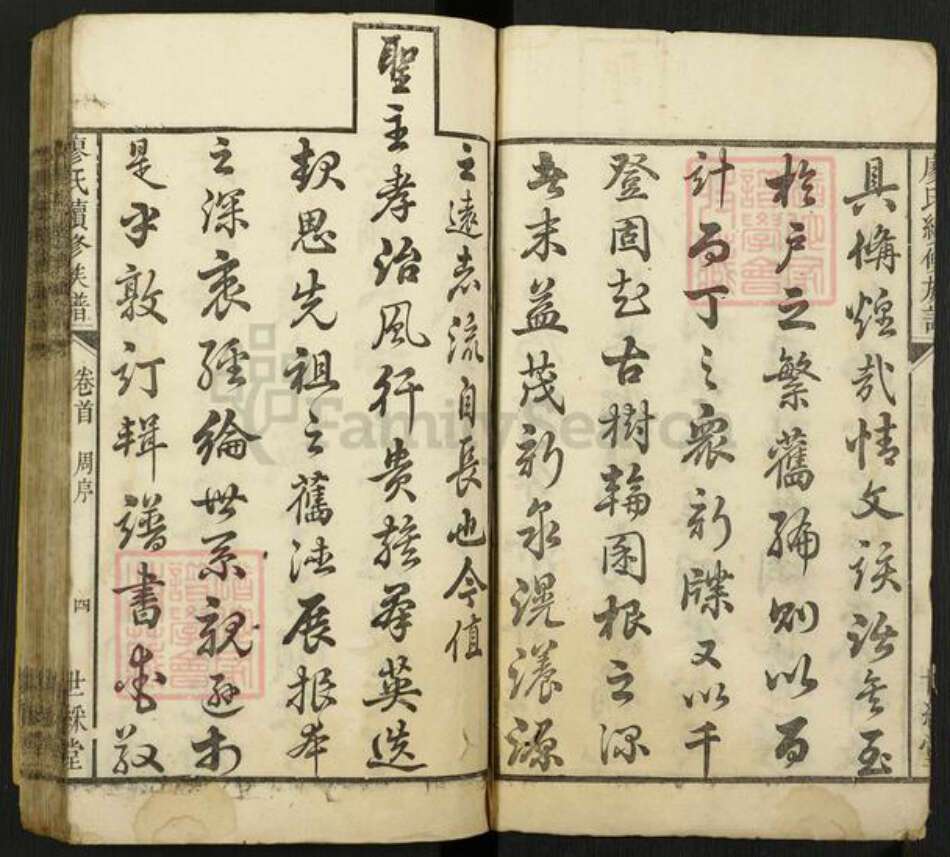 具備煌哉情文該洽矣至
於戶之繁舊編則以百
計而丁之衆新牒又以千
登固知古樹輪囷根之深
者末益茂新泉滉瀁源
之遠者流自長也今值
聖主孝治風行貴族群英迭
起思先祖之舊法展報本
之深衷經綸世系親遜於
是乎敦訂輯譜書成敬
廖氏續修族譜
卷首
周序
四
世綵堂
廖氏續修族譜
FamilySearch